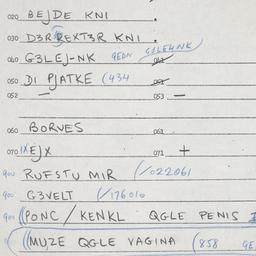 020 BEJDE KNI
030 D3RREXT3R KNI
040 G3LEJ-NK GEDN G3LE4NK 041
050 DI PJATKE (434 051
052 — 053 —
060 BORVES 061
070 1XEJX 071 +
900 RUFSTU MIR (/022061
900 G3VELT (/176010
900 ((PONC / KENKL QGLE PENIS
((MUZE QGLE VAGINA (858 GE